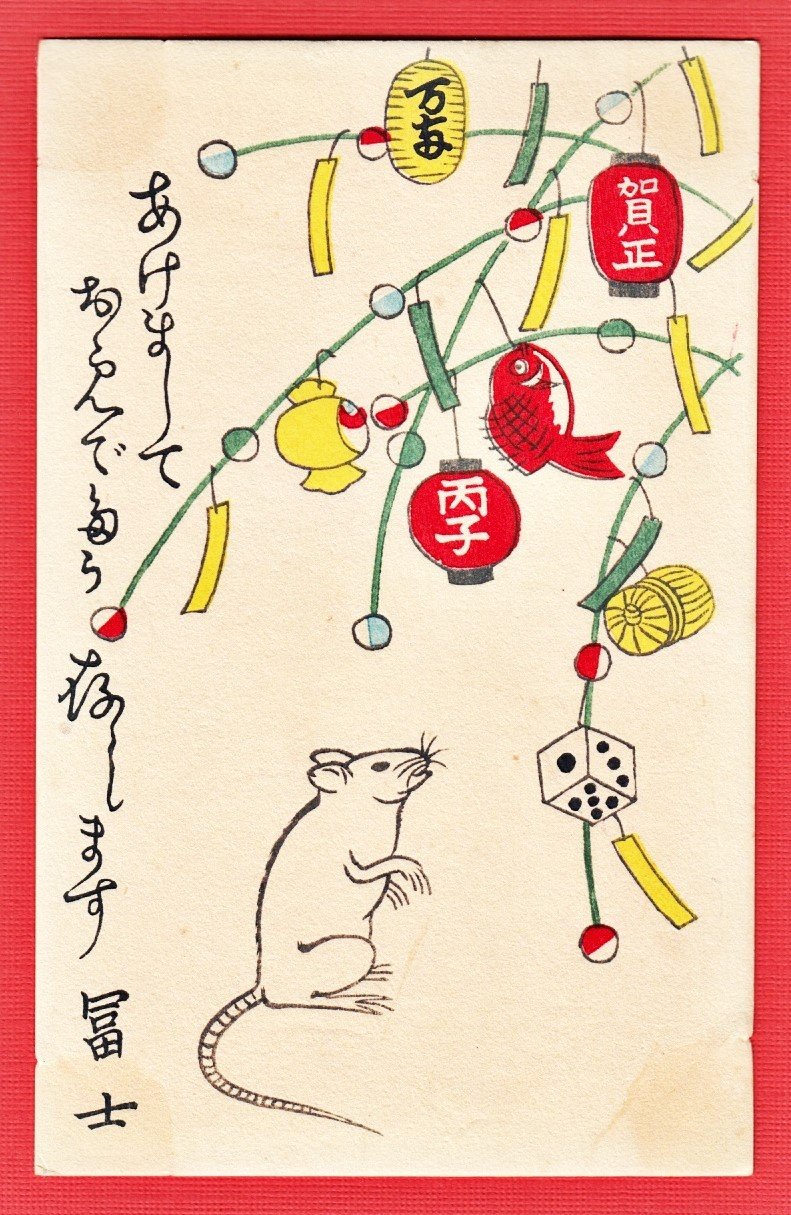 賀正
丙子
あけまして
おめでたう 存じます 冨士